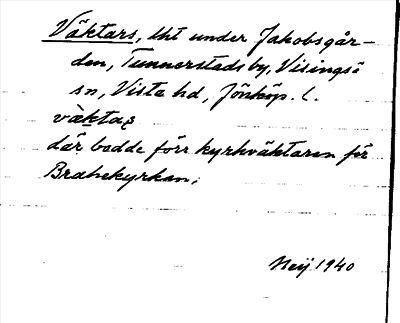 Väktars, lht under Jakobsgår-
den, Tunnerstads by, Visingsö
sn, Vista hd, Jönköp. l.
väktaʂ
där bodde förr kyrkväktaren för
Brahekyrkan.
Neij 1940